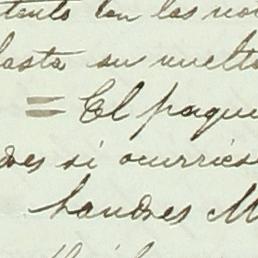 tento con las no
hasta su vuelta
= El paque
des si ocurries
Landres M